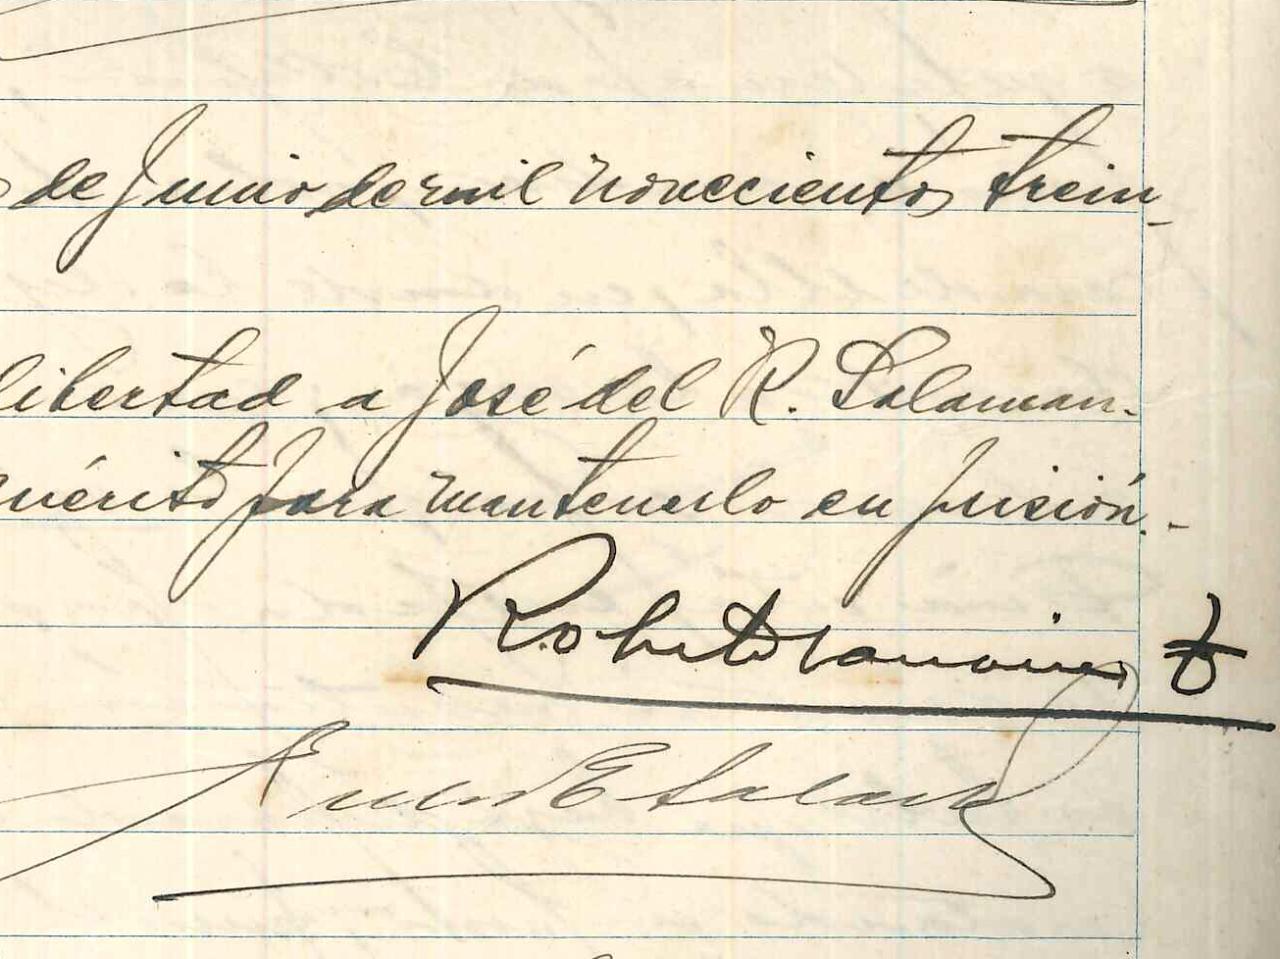 de Junio de mil novecientos trein-
libertad a José del R. Salaman-
mérito para mantenerlo en prisión.-
Roberto